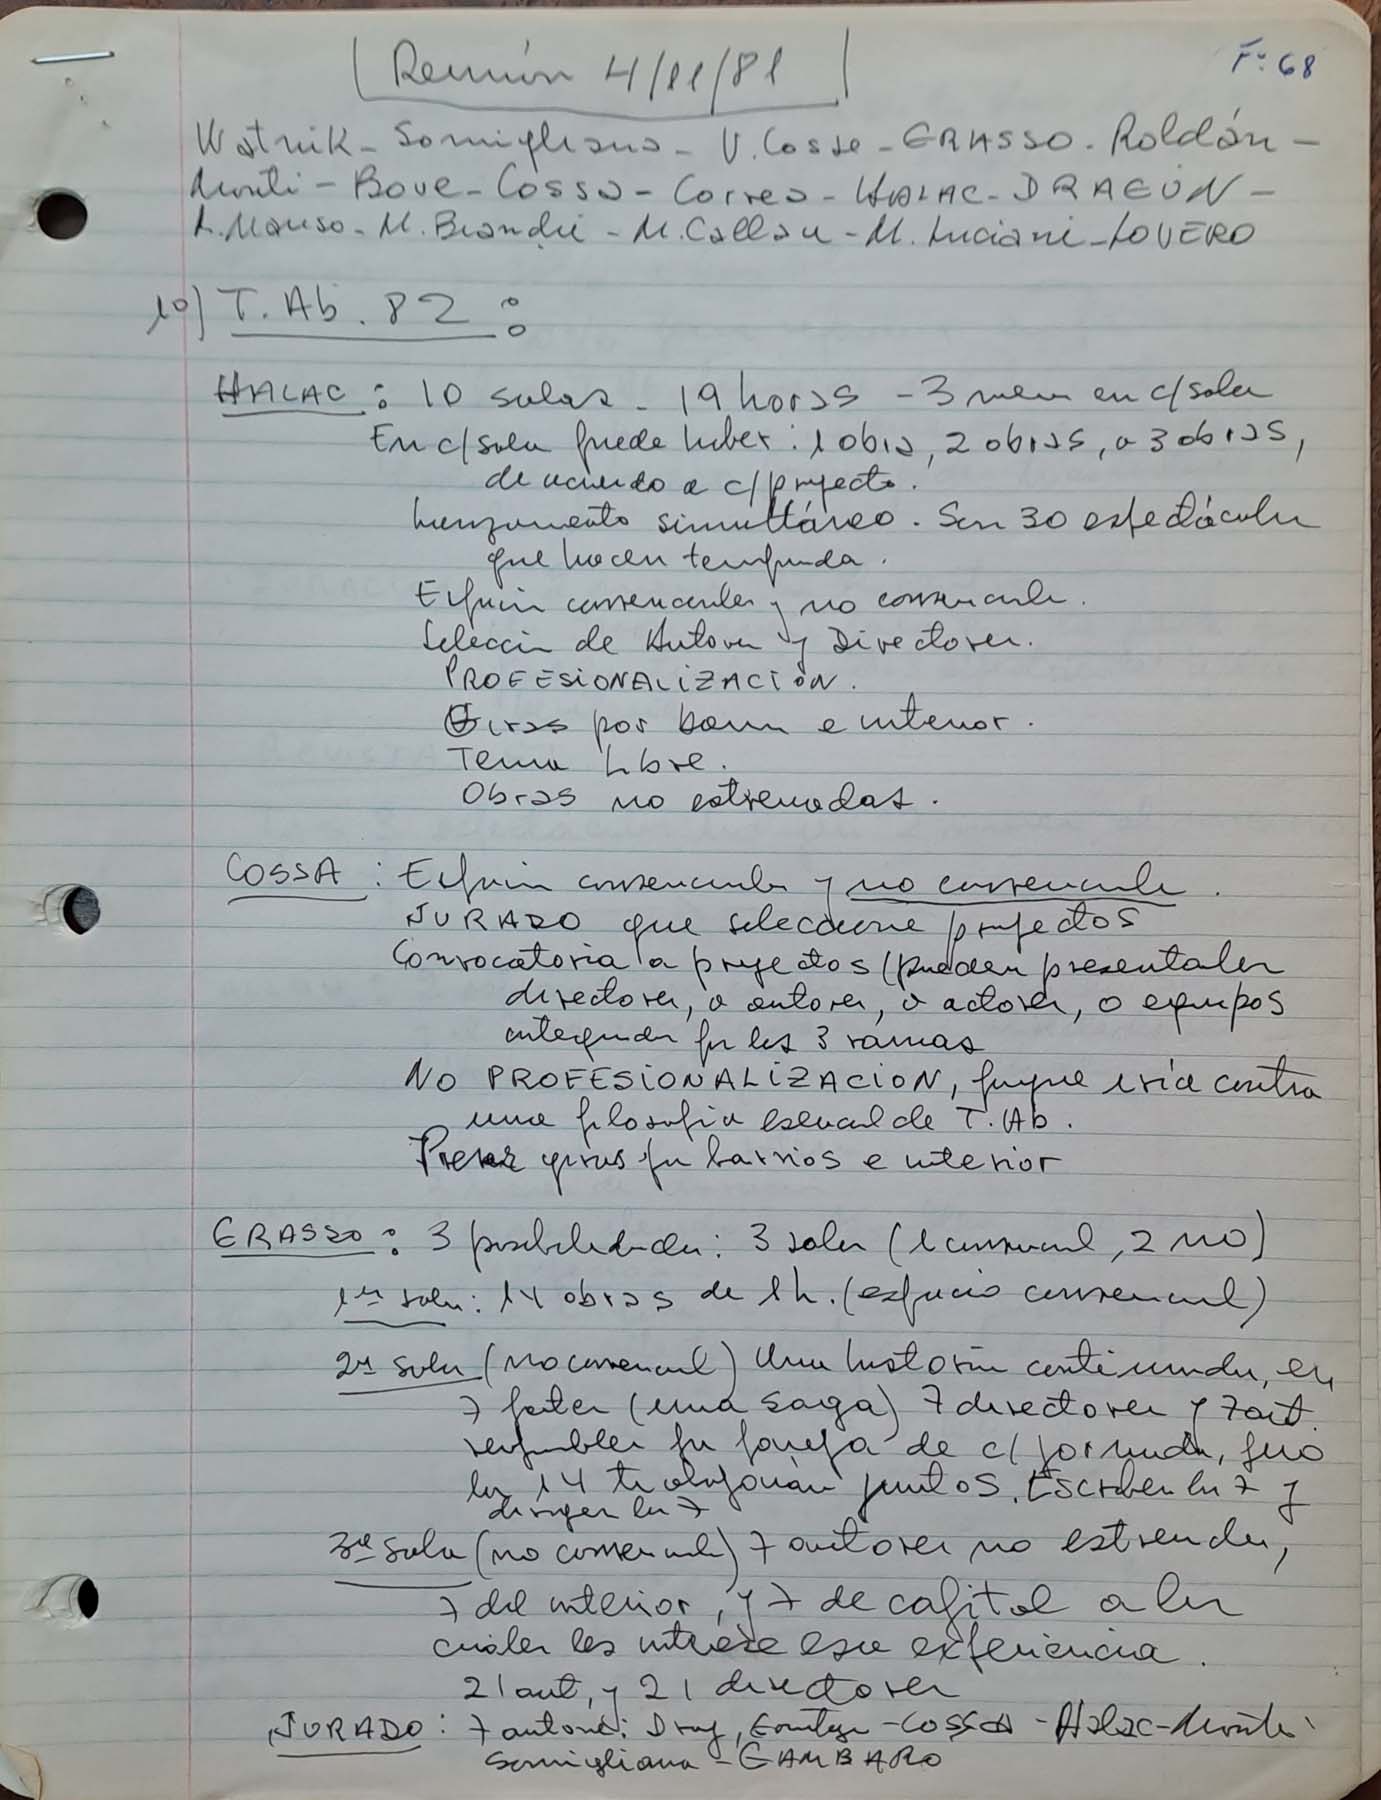 Reunión 4/11/81
F: 68
Watnik - Somigliana - V. Cosse - GRASSO - Roldán -
Monti - Bove - Cossa - Correa - HALAC - DRAGÚN -
L. Manso - M. Brandu - M. Callau - M. Luciani - LOVERO
1º) T. Ab. 82 :
HALAC : 10 salas - 19 horas - 3 meses en c/sala
En c/sala puede haber : 1 obra, 2 obras, o 3 obras,
de acuerdo a c/proyecto.
Lanzamiento simultáneo. Son 30 espectáculos
que hacen temporada.
Espacios convencionales y no convencionales.
Selección de Autores y Directores.
PROFESIONALIZACIÓN.
Giras por barrios e interior.
Tema libre.
Obras no estrenadas.
COSSA : Espacios convencionales y no convencionales.
JURADO que seleccione proyectos
Convocatoria a proyectos (pueden presentarlos
directores, o autores, o actores, o equipos
integrados por las 3 ramas
NO PROFESIONALIZACION, porque iría contra
una filosofía esencial de T. Ab.
giras por barrios e interior
GRASSO : 3 posibilidades : 3 salas (1 convencional, 2 NO)
1ª sala : 14 obras de 1 h. (espacio convencional)
2ª sala (no convencional) Una historia continuada, en
7 partes (una saga) 7 directores y 7 aut.
responsables por pareja de c/jornada, pero
los 14 trabajarían juntos. Escriben los 7 y
dirigen los 7
3ª sala (no convencional) 7 autores no estrenados,
7 del interior, y 7 de capital a los
cuales les interese esa experiencia.
21 aut, y 21 directores
JURADO : 7 autores : Drag, - COSSA - Halac - Monti
Somigliana - GAMBARO